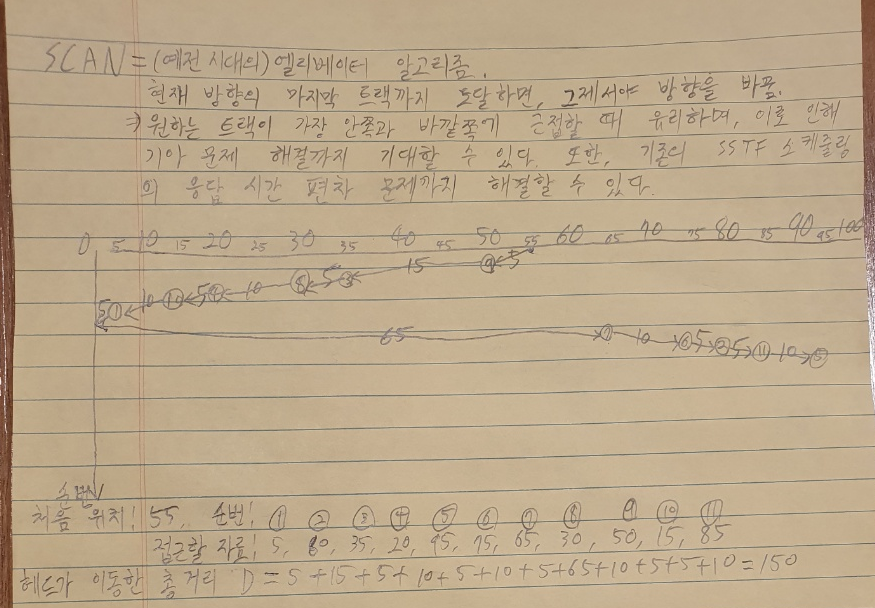 SCAN = (예전 시대의) 엘리베이터 알고리즘.
현재 방향의 마지막 트랙까지 도달하면, 그제서야 방향을 바꿈.
⇒ 원하는 트랙이 가장 안쪽과 바깥쪽에 근접할 때 유리하며, 이로 인해
기아 문제 해결까지 기대할 수 있다. 또한, 기존의 SSTF 스케줄링
의 응답 시간 편차 문제까지 해결할 수 있다.
0 5 10 15 20 25 30 35 40 45 50 55 60 65 70 75 80 85 90 95 100
5 ① 10 ⑩ 5 ④ 10 ⑧ 5 ③ 15 ⑨ 5
65 ⑦ 10 ⑥ 5 ② 5 ⑪ 10 ⑤
처음 위치! 55, 순번! ① ② ③ ④ ⑤ ⑥ ⑦ ⑧ ⑨ ⑩ ⑪
접근할 자료! 5, 80, 35, 20, 95, 75, 65, 30, 50, 15, 85
헤드가 이동한 총 거리 D = 5+15+5+10+5+10+5+65+10+5+5+10=150